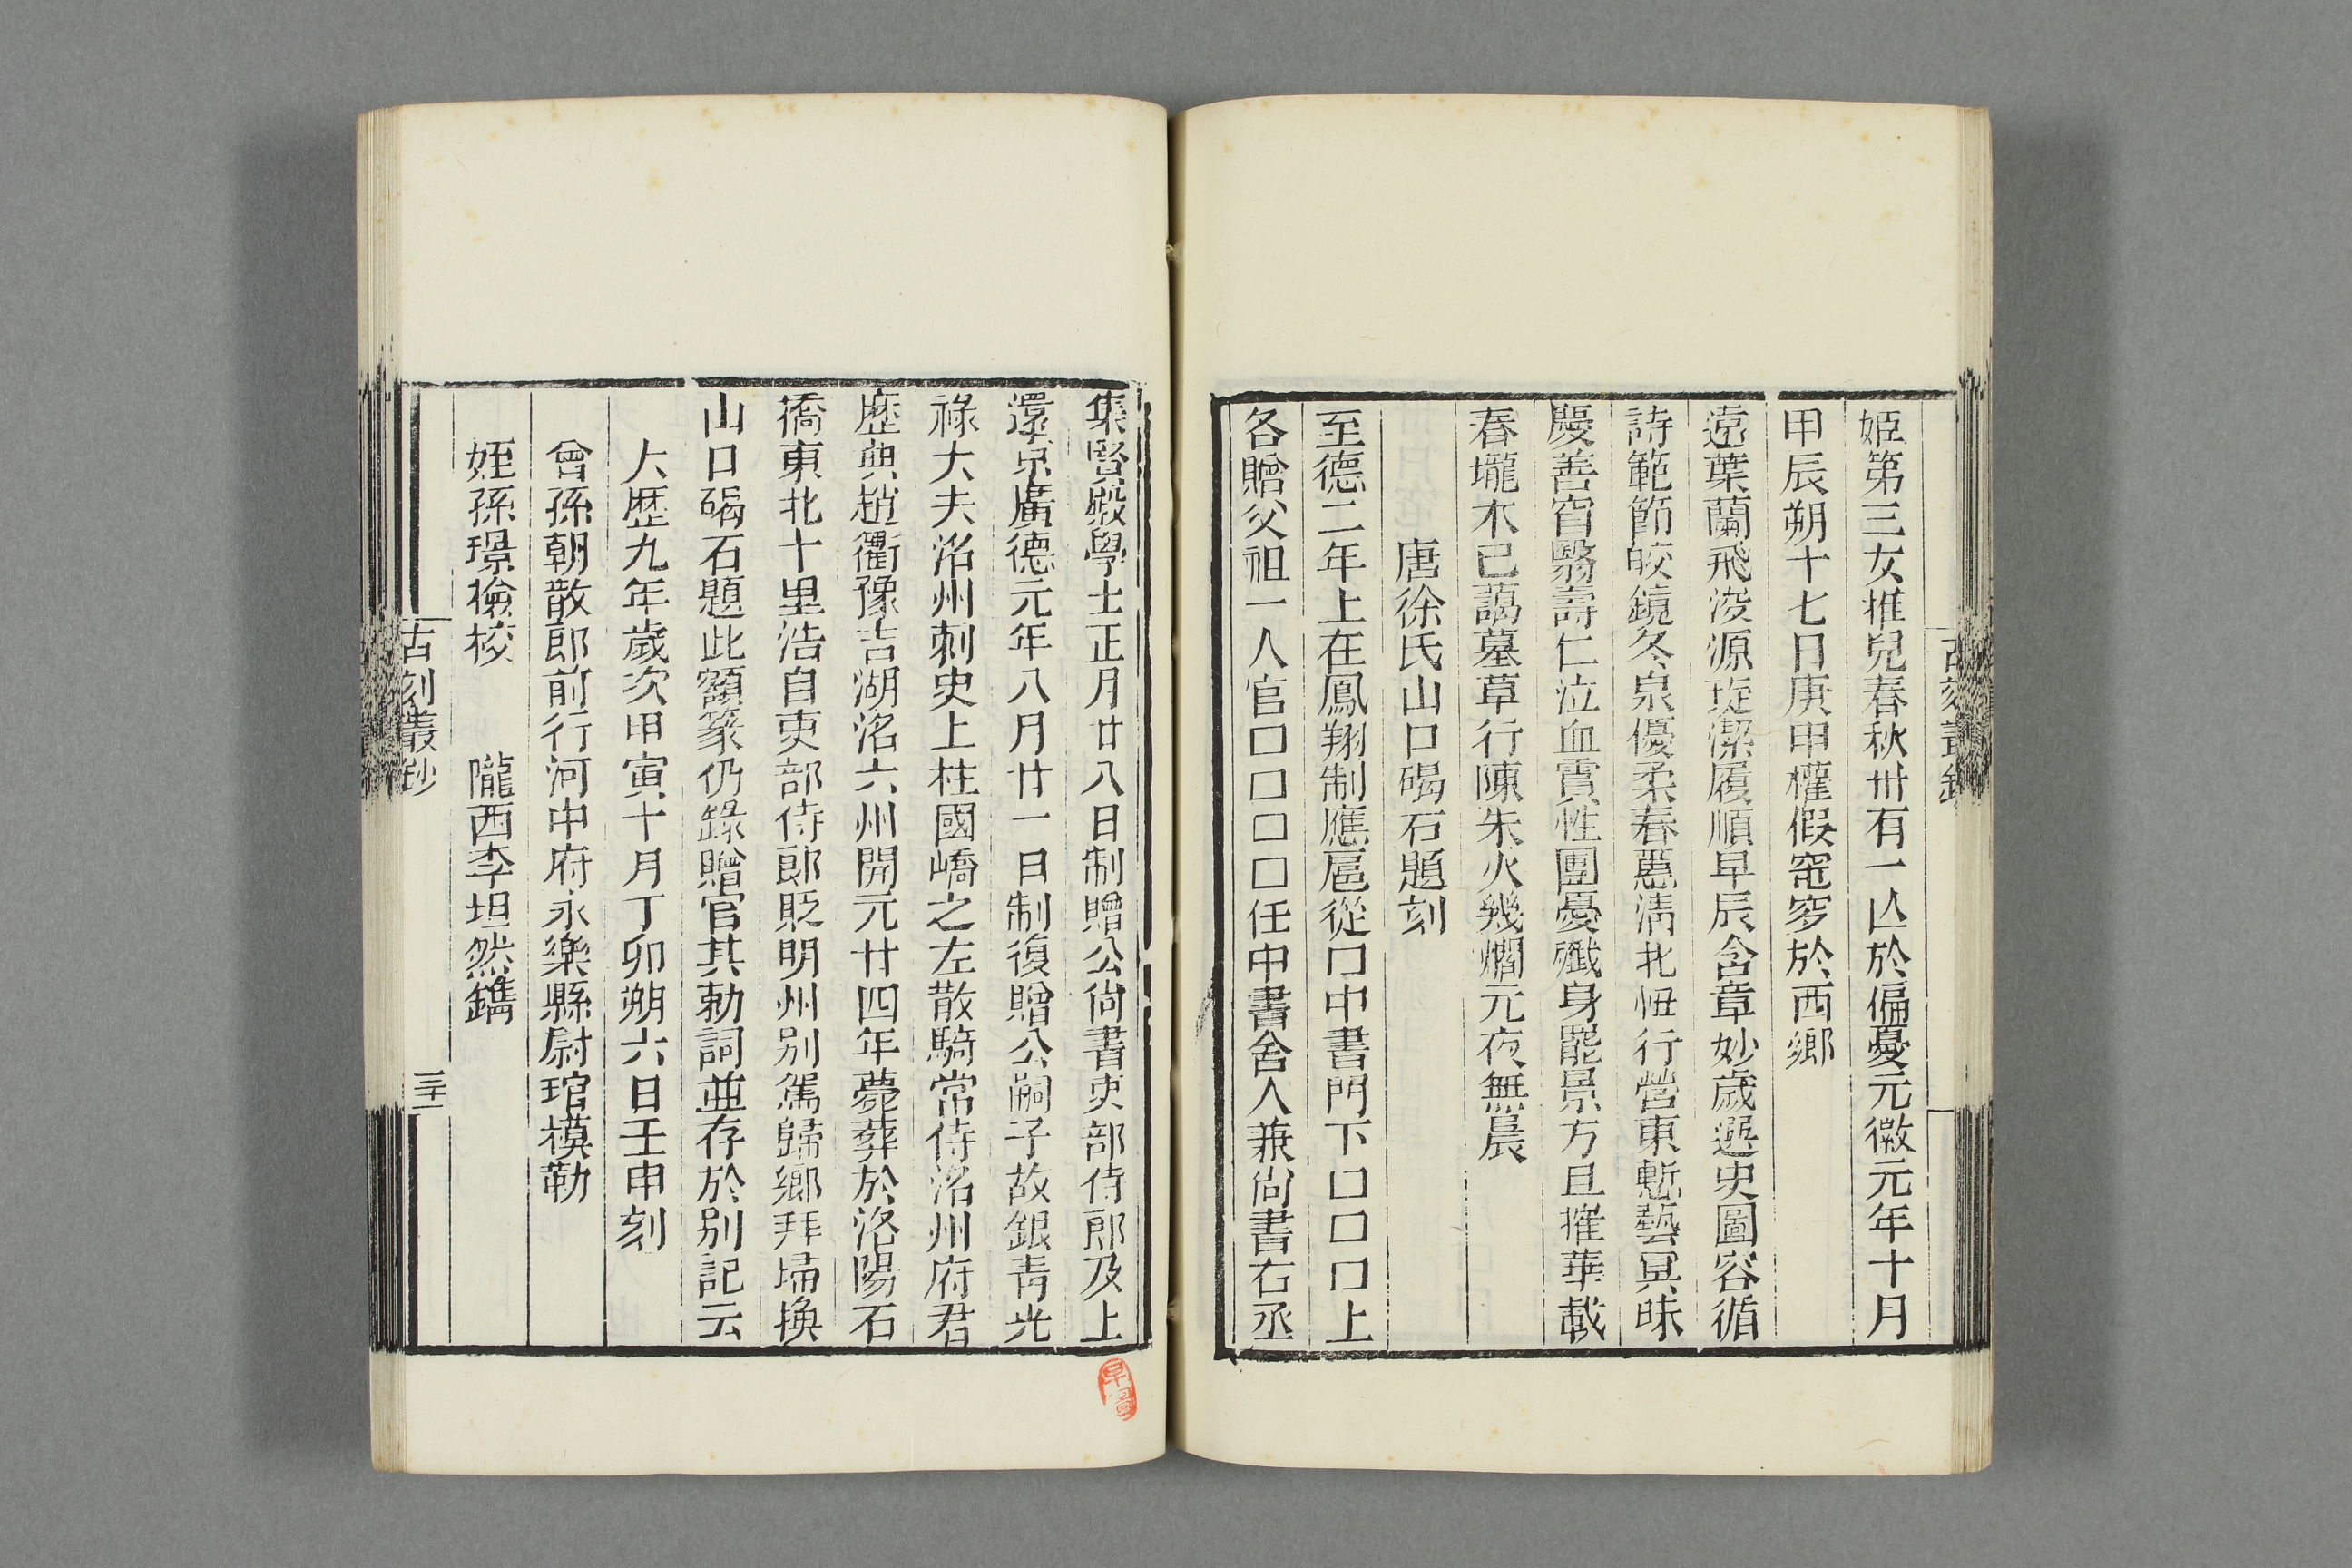 姬第三女推兒春秋卅有一亾於偏憂元徽元年十月
甲辰朔十七日庚申權假窀穸於西鄉
遠葉蘭飛浚源琁潔履順早辰含章妙歲選史圖容循
詩範節皎鏡冬泉優柔春蕙淸北恤行營東慙藝冥昧
慶善宵翳壽仁泣血賣性團憂殲身罷景方旦摧華載
春壠木已藹墓草行陳朱火幾爓元夜無晨
唐徐氏山口碣石題刻
至德二年上在鳳翔制應扈從口中書門下口口口上
各贈父祖一人官口口口口任中書舍人兼尙書右丞
集賢殿學士正月廿八日制贈公尙書吏部侍郎及上
還京廣德元年八月廿一日制復贈公嗣子故銀靑光
祿大夫洺州刺史上柱國嶠之左散騎常侍洺州府君
歷典趙衢豫吉湖洺六州開元廿四年薨葬於洛陽石
橋東北十里浩自吏部侍郎貶明州别駕歸鄉拜埽換
山口碣石題此額篆仍錄贈官其勅詞並存於别記云
大歷九年歲次甲寅十月丁卯朔六日壬申刻
曾孫朝散郎前行河中府永樂縣尉琯模勒
姪孫璟檢校　　隴西李坦然鐫
古刻叢鈔
三十一